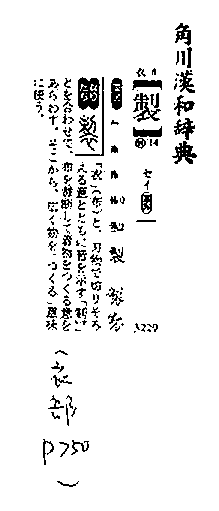 角川漢和辞典
衣 8
製
14
セイ
製
3229
「衣」(布)と、刃物で切りそろ
える意とともに音を示す「制」
とを合わせて、布を裁断して着物をつくる意を
あらわす。そこから、広く物を「つくる」意味
に使う。
(衣部
P750
)